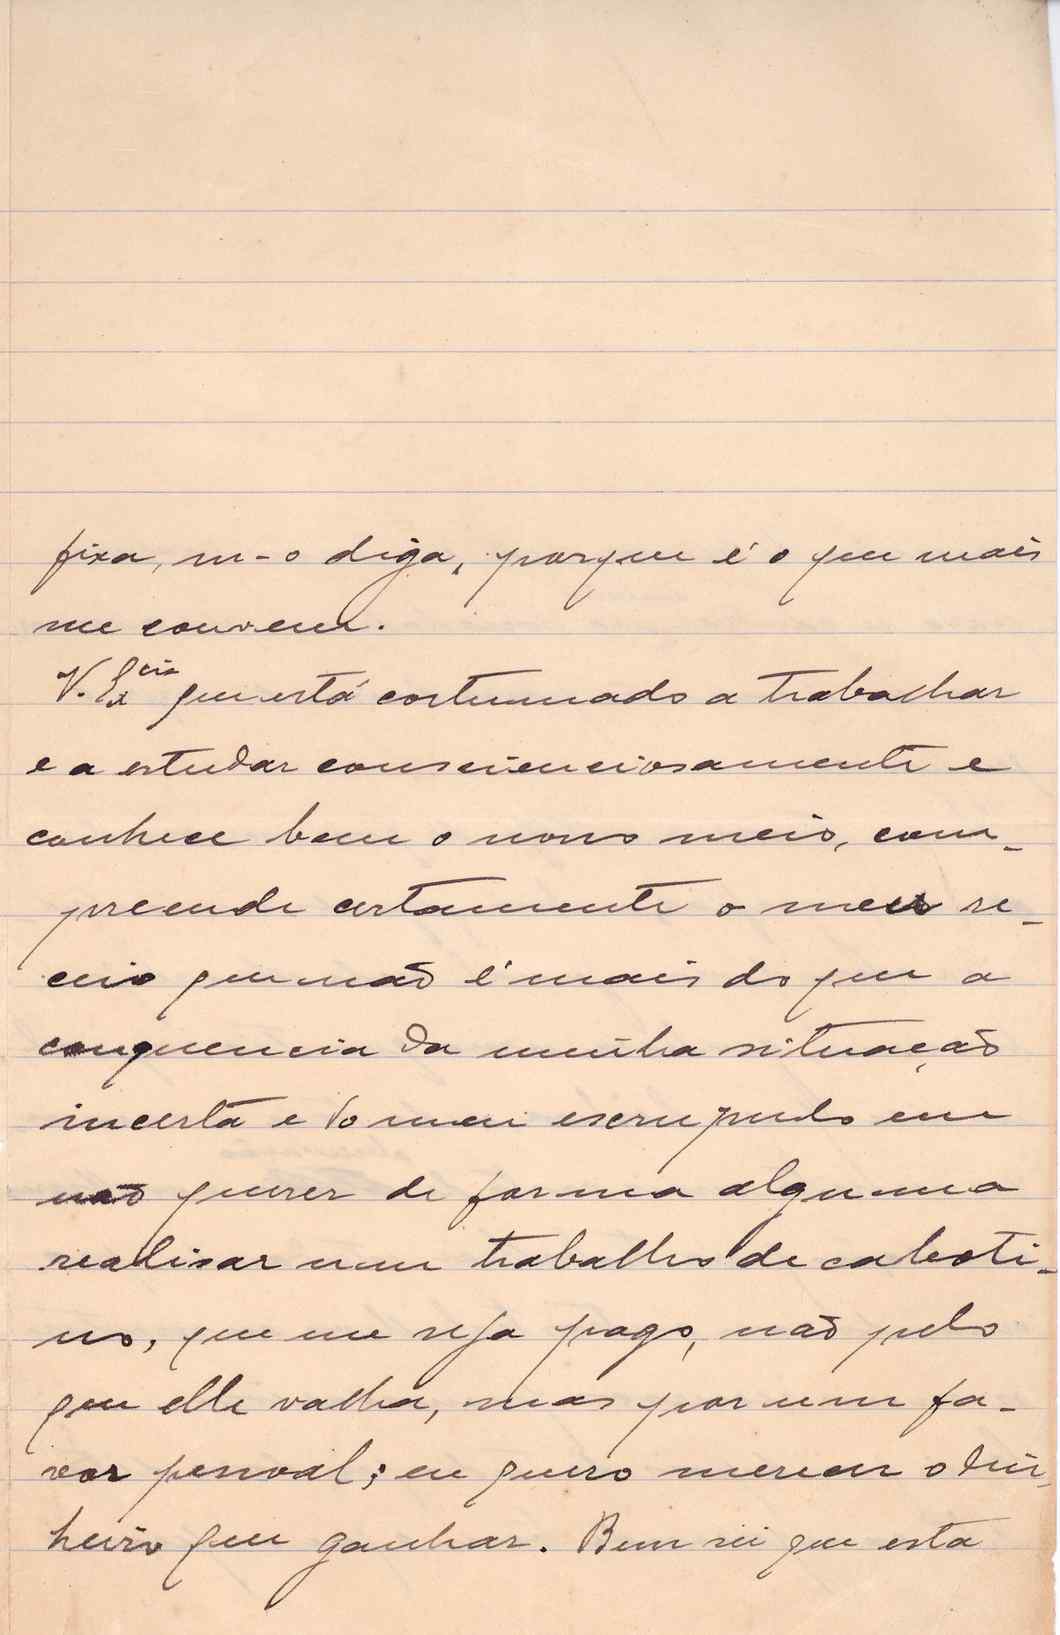 fixa, m-o diga, porque é o que mais
me convem.
V. Excia que está costumado a trabalhar
e a estudar conscienciosamente e
conhece bem o nosso meio, com-
preende certamente o meu re-
ceio que não é mais do que a
conquencia da minha situação
incerta e do meu escrupulo em
não querer de forma alguma
realisar um trabalho de caboti-
no, que me seja pago, não pelo
que elle valha, mas por um fa-
vor pessoal; eu quero merecer o din-
heiro que ganhar. Bem sei que esta